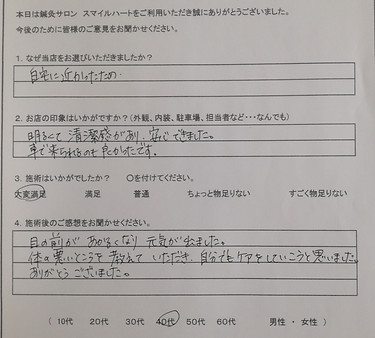 本日は鍼灸サロン スマイルハートをご利用いただき誠にありがとうございました。
今後のために皆様のご意見をお聞かせください。
1. なぜ当店をお選びいただきましたか?
自宅に近かったため
2. お店の印象はいかがですか?(外観、内装、駐車場、担当者など・・・なんでも)
明るくて清潔感があり、安心できました。
車で来られるのも良かったです。
3. 施術はいかがでしたか? ○を付けてください。
大変満足 満足 普通 ちょっと物足りない すごく物足りない
4. 施術後のご感想をお聞かせください。
目の前が あかるくなり 元気が出ました。
体の悪いところを教えていただき、自分でもケアをしていこうと思いました。
ありがとうございました。
( 10代 20代 30代 40代 50代 60代 男性 ・ 女性 )